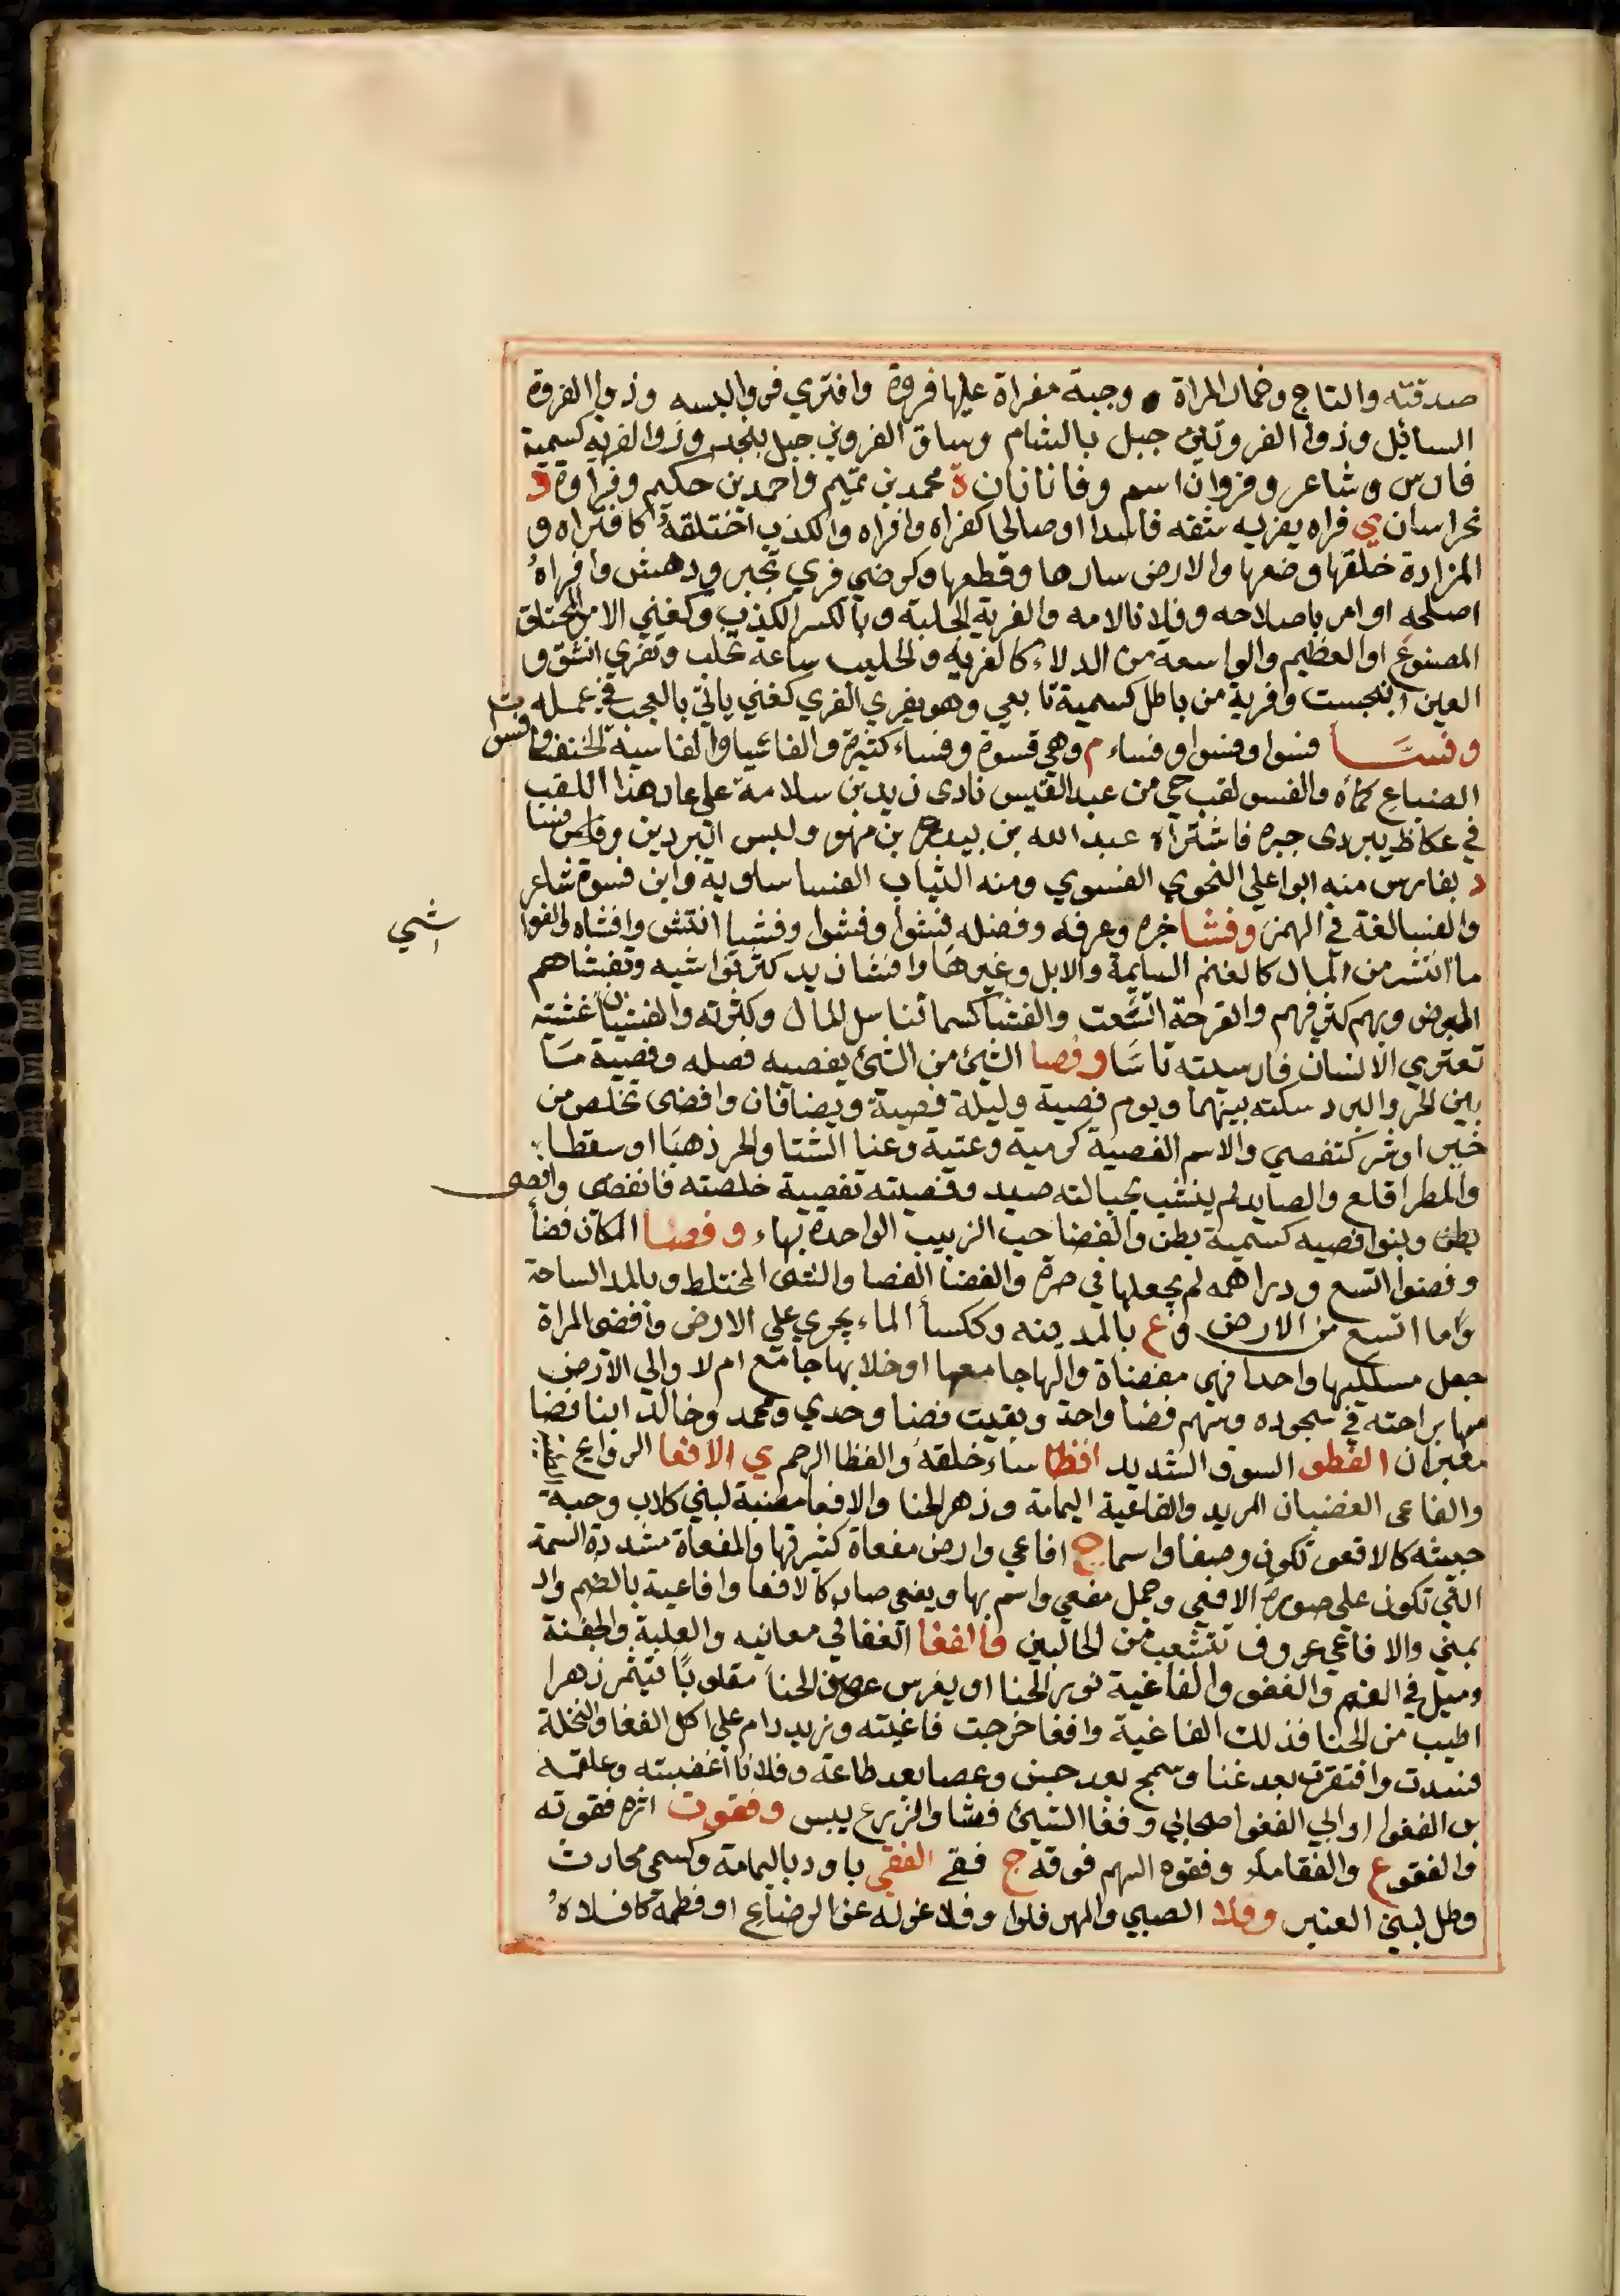 صدقته والتاج وخمار المراة وجبة مفراة عليها فروة وافتري فروا لبسه وذوا الفروة
السائل وذوا الفروتين جبل بالشام وساق الفروين جبل بنجد وذوا الفريه كسمية
فارس وشاعر وفروان اسم وفانانان ة محمد بن تميم واحمد بن حكيم وفراوة د
بخراسان ي فراه يفريه شقه فاسدا اوصالحا كفراه وافراه والكذب اختلقه كافتراه و
المزادة خلقها وضعها والارض سارها وقطعها وكرضي فري تحير ودهش وافراه
اصلحه او امر باصلاحه وفلانا لامه والفرية الجلبة وبالكسر الكذب وكغني الامر المختلق
المصنوع او العظيم والواسعة من الدلاء كالفرية والحليب ساعة يحلب وتفري انشق و
العين انبجست وفرية من باطل كسمية تابعي وهو يفري الفري كغني ياتي بالعجب في عمله
وفسا فسوا وفسوا وفساء م وهي فسوة وفساء كثيرة والفاسيا والفاسية الخنفسا وفسوات
الضباع كماه والفسو لقب حي من عبد القيس نادى زيد بن سلامة على عار هذا اللقب
في عكاظ ببردى حبره فاشتراه عبد الله بن بيدرة بن مهو ولبس البردين وفسا
د بفارس منه ابوا علي النحوي الفسوي ومنه الثياب الفسا ساوية وابن فسوة شاعر
والفسا لغة في الهمز وفشا خبره وعرفه وفضله فشوا وفشوا وفشيا انتشر وافشاه والفوا
شي
ما انتشر من المال كالغنم السايمة والابل وغيرها وافشا زيد كثر فواشيه وتفشاهم
المرض وبهم كثر فيهم والقرحة اتسعت والفشا كسما تناسل المال وكثرته والفشيان غشية
تعتري الانسان فارسيته تاسا وفصا الشيئ من الشيئ يفصيه فصله وفصية ما
بين الحر والبرد سكته بينهما ويوم فصية وليلة فصية ويضافان وافصى تخلص من
خير او شر كتفصي والاسم الفصية كرمية وعتية وعنا الشتا والحر ذهبا او سقطا
والمطر اقلع والصايد لم ينشب بحبالته صيد وفصيته تفصية خلصته فانفصى وافصى
بطن وبنوا فصيه كسمية بطن والفصا حب الزبيب الواحدة بهاء وفضا المكان فضأ
وفضوا اتسع ودراهمه لم يجعلها في صرة والفضا الفصا والشئ المختلط وبالمد الساحة
وما اتسع من الارض وع بالمدينه وككسأ الماء يجري على الارض وافضى المراة
جعل مسلكيها واحدا فهي مفضاة واليها جامعها او خلا بها جامع ام لا والي الارض
مسها براحته في سجوده وسهم فضا واحد وبقيت فضا وحدي ومحمد وخالد ابنا فضا
معبران الفظو السوق الشديد افظا ساء خلقه والفظا الرحم ي الافعا الروايح
والفاعى الغضبان المزيد والفاعية اليمامة وزهر الحنا والافعا هضبة لبني كلاب وحية
خبيثه كالافعو تكون وصيفا واسما ج افاعي وارض مفعاة كثيرتها والمفعاة مشددة السمة
التي تكون على صورة الافعي وجمل مفعي واسم بها ويفعي صار كالافعا وافاعية بالضم واد
بمني والافاعي عروق تتشعب من الحالبين والفغا الغفا في معانيه والعلبة والجفنة
وميل في الفم والفغو والفاغية نور الحنا او يغرس غصن الحنا مقلوبا فيثمر زهرا
اطيب من الحنا فذلك الفاغية وافغا خرجت فاغيته وزيد دام على اكل الفغا والنخلة
فسدت وافتقر بعد غنا وسمج بعد حسن وعصا بعد طاعة وفلانا اغضبته وعلقمة
بن الفغوا او ابي الفغوا صحابي وفغا الشيئ فشا والزرع يبس وفقوت اثره فقوته
والفقو ع والفقا ماء وفقوه السهم فوقه ج فقي الفقي باود باليمامة وكسمى محارث
وطل لبني العنبر وفلا الصبي والمهر فلوا وفلا عزله عن الرضاع او فطمه كافلاه